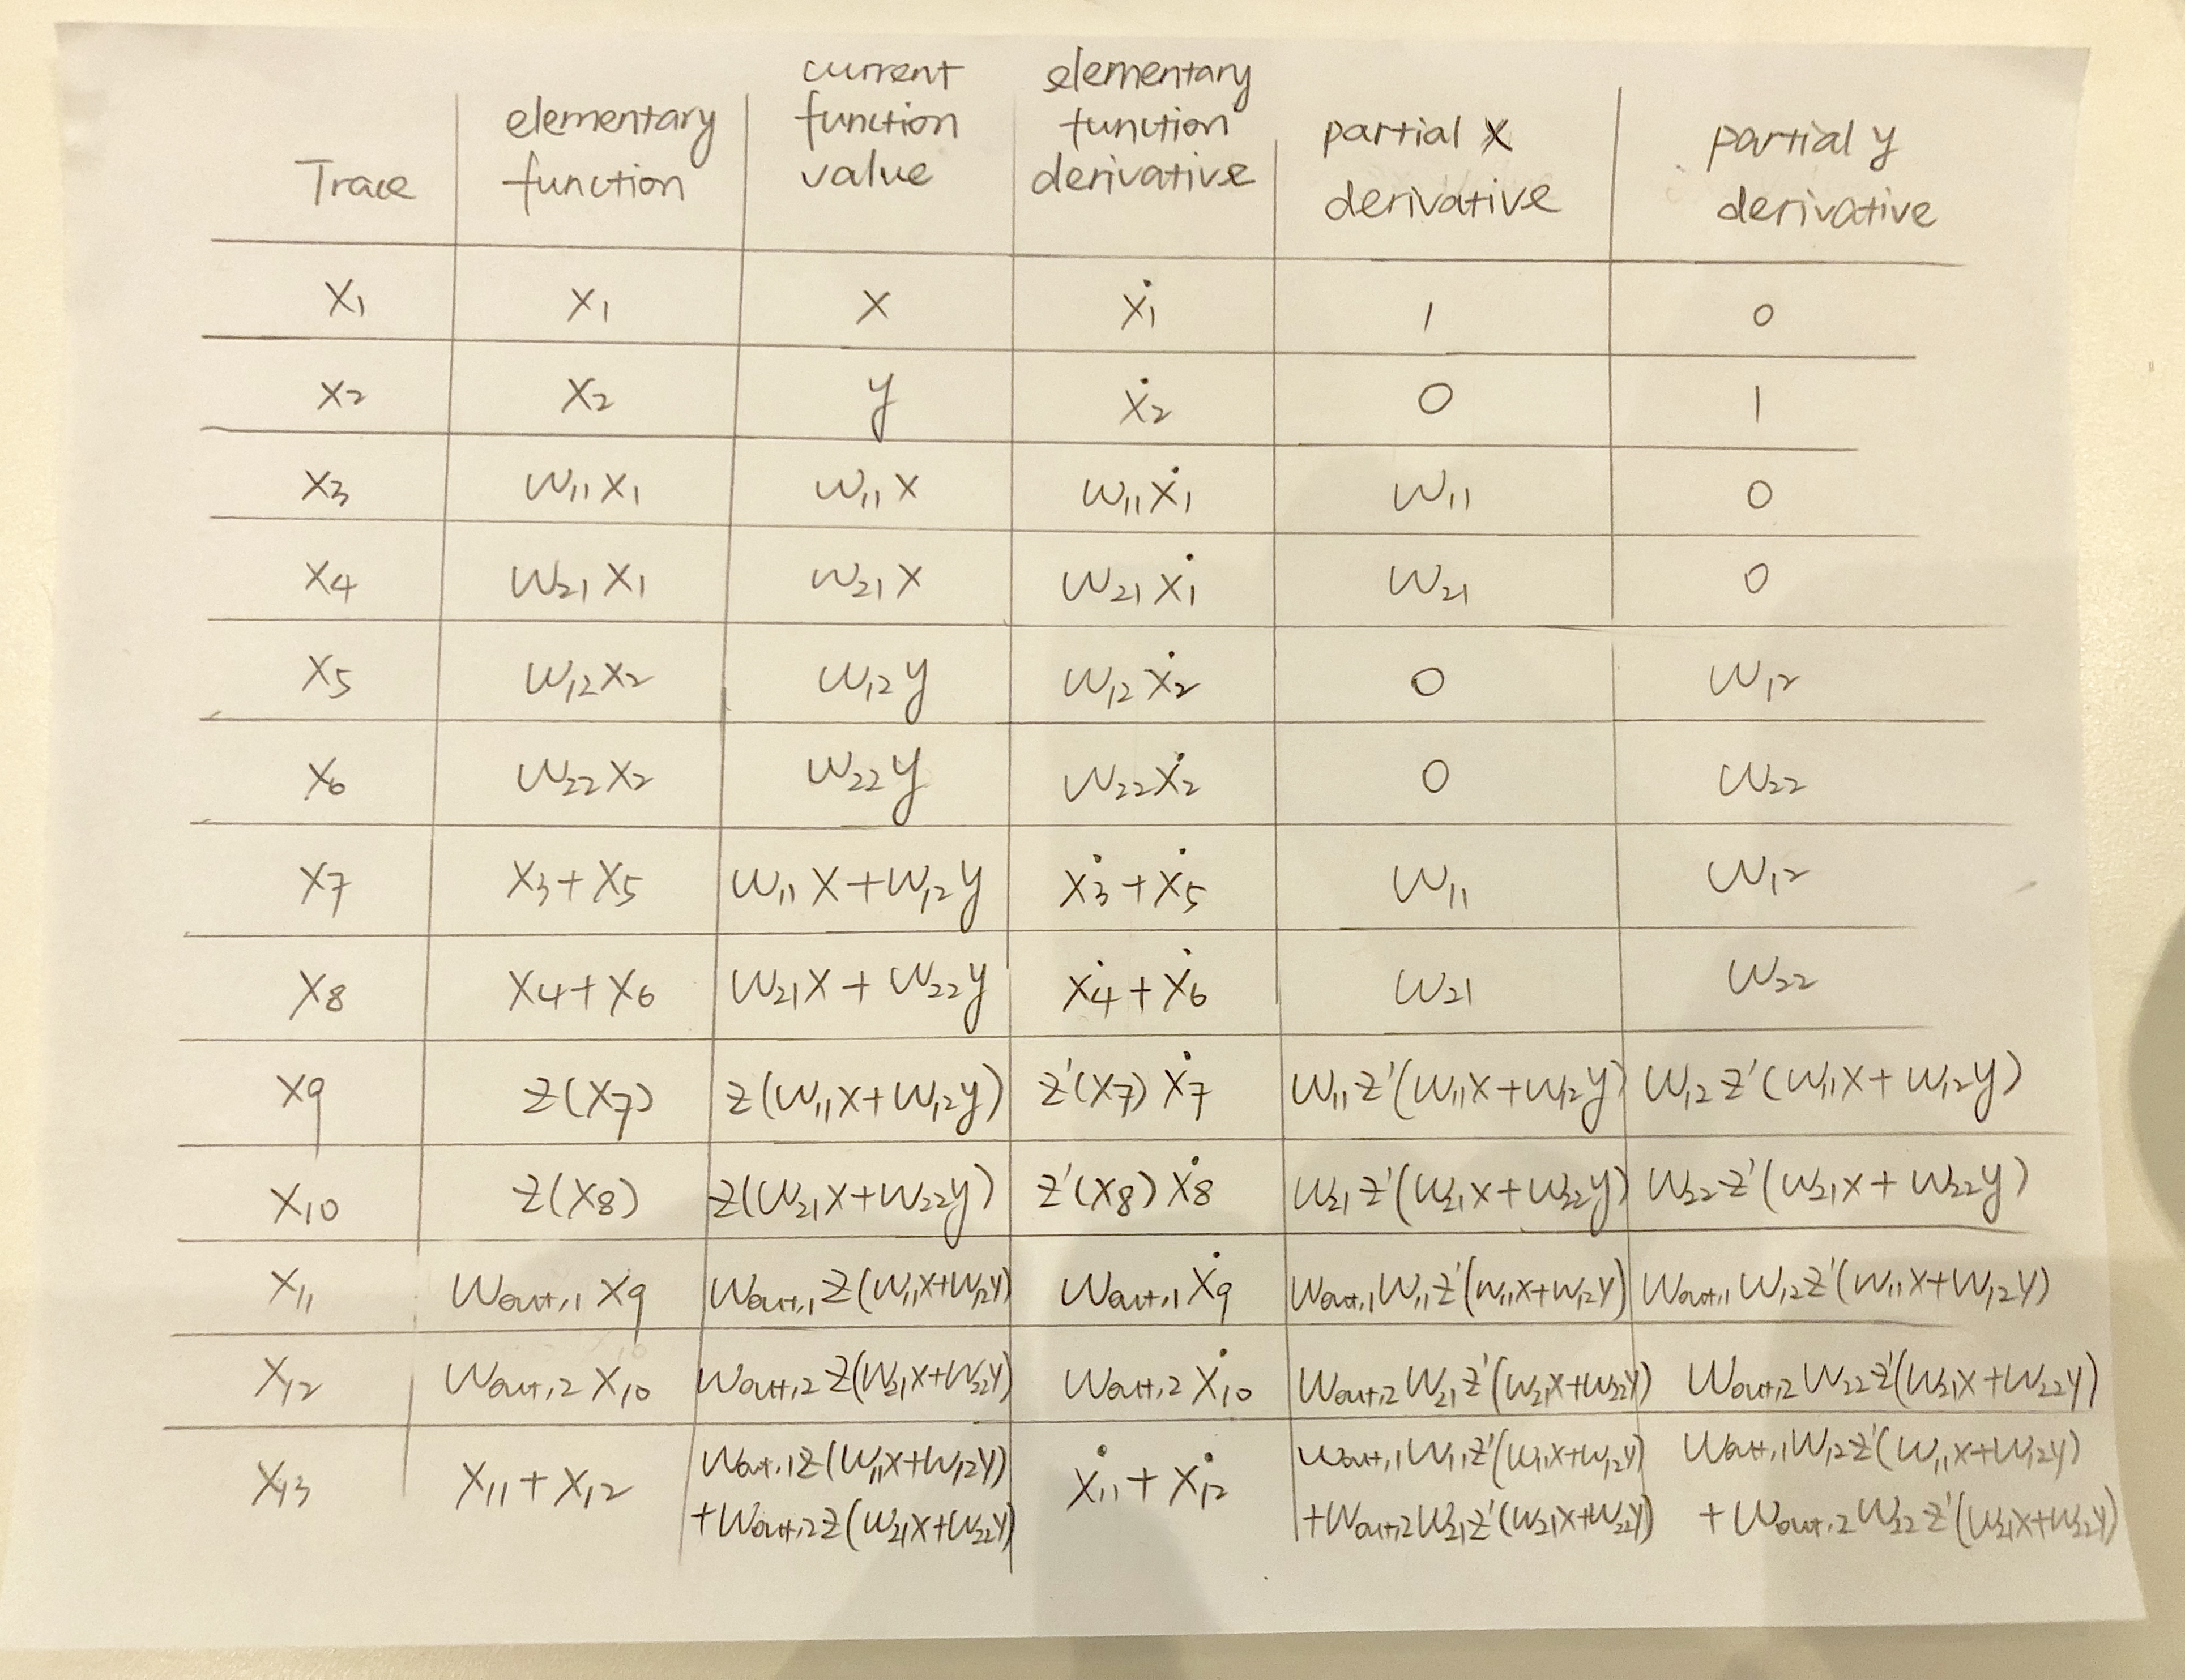 Trace | elementary function | current function value | elementary function derivative | partial x derivative | partial y derivative
x₁ | x₁ | x | ẋ₁ | 1 | 0
x₂ | x₂ | y | ẋ₂ | 0 | 1
x₃ | w₁₁x₁ | w₁₁x | w₁₁ẋ₁ | w₁₁ | 0
x₄ | w₂₁x₁ | w₂₁x | w₂₁ẋ₁ | w₂₁ | 0
x₅ | w₁₂x₂ | w₁₂y | w₁₂ẋ₂ | 0 | w₁₂
x₆ | w₂₂x₂ | w₂₂y | w₂₂ẋ₂ | 0 | w₂₂
x₇ | x₃+x₅ | w₁₁x+w₁₂y | ẋ₃+ẋ₅ | w₁₁ | w₁₂
x₈ | x₄+x₆ | w₂₁x+w₂₂y | ẋ₄+ẋ₆ | w₂₁ | w₂₂
x₉ | z(x₇) | z(w₁₁x+w₁₂y) | z'(x₇)ẋ₇ | w₁₁z'(w₁₁x+w₁₂y) | w₁₂z'(w₁₁x+w₁₂y)
x₁₀ | z(x₈) | z(w₂₁x+w₂₂y) | z'(x₈)ẋ₈ | w₂₁z'(w₂₁x+w₂₂y) | w₂₂z'(w₂₁x+w₂₂y)
x₁₁ | w_out,1 x₉ | w_out,1 z(w₁₁x+w₁₂y) | w_out,1 ẋ₉ | w_out,1 w₁₁z'(w₁₁x+w₁₂y) | w_out,1 w₁₂z'(w₁₁x+w₁₂y)
x₁₂ | w_out,2 x₁₀ | w_out,2 z(w₂₁x+w₂₂y) | w_out,2 ẋ₁₀ | w_out,2 w₂₁z'(w₂₁x+w₂₂y) | w_out,2 w₂₂z'(w₂₁x+w₂₂y)
x₁₃ | x₁₁+x₁₂ | w_out,1 z(w₁₁x+w₁₂y) +w_out,2 z(w₂₁x+w₂₂y) | ẋ₁₁+ẋ₁₂ | w_out,1 w₁₁z'(w₁₁x+w₁₂y) +w_out,2 w₂₁z'(w₂₁x+w₂₂y) | w_out,1 w₁₂z'(w₁₁x+w₁₂y) +w_out,2 w₂₂z'(w₂₁x+w₂₂y)